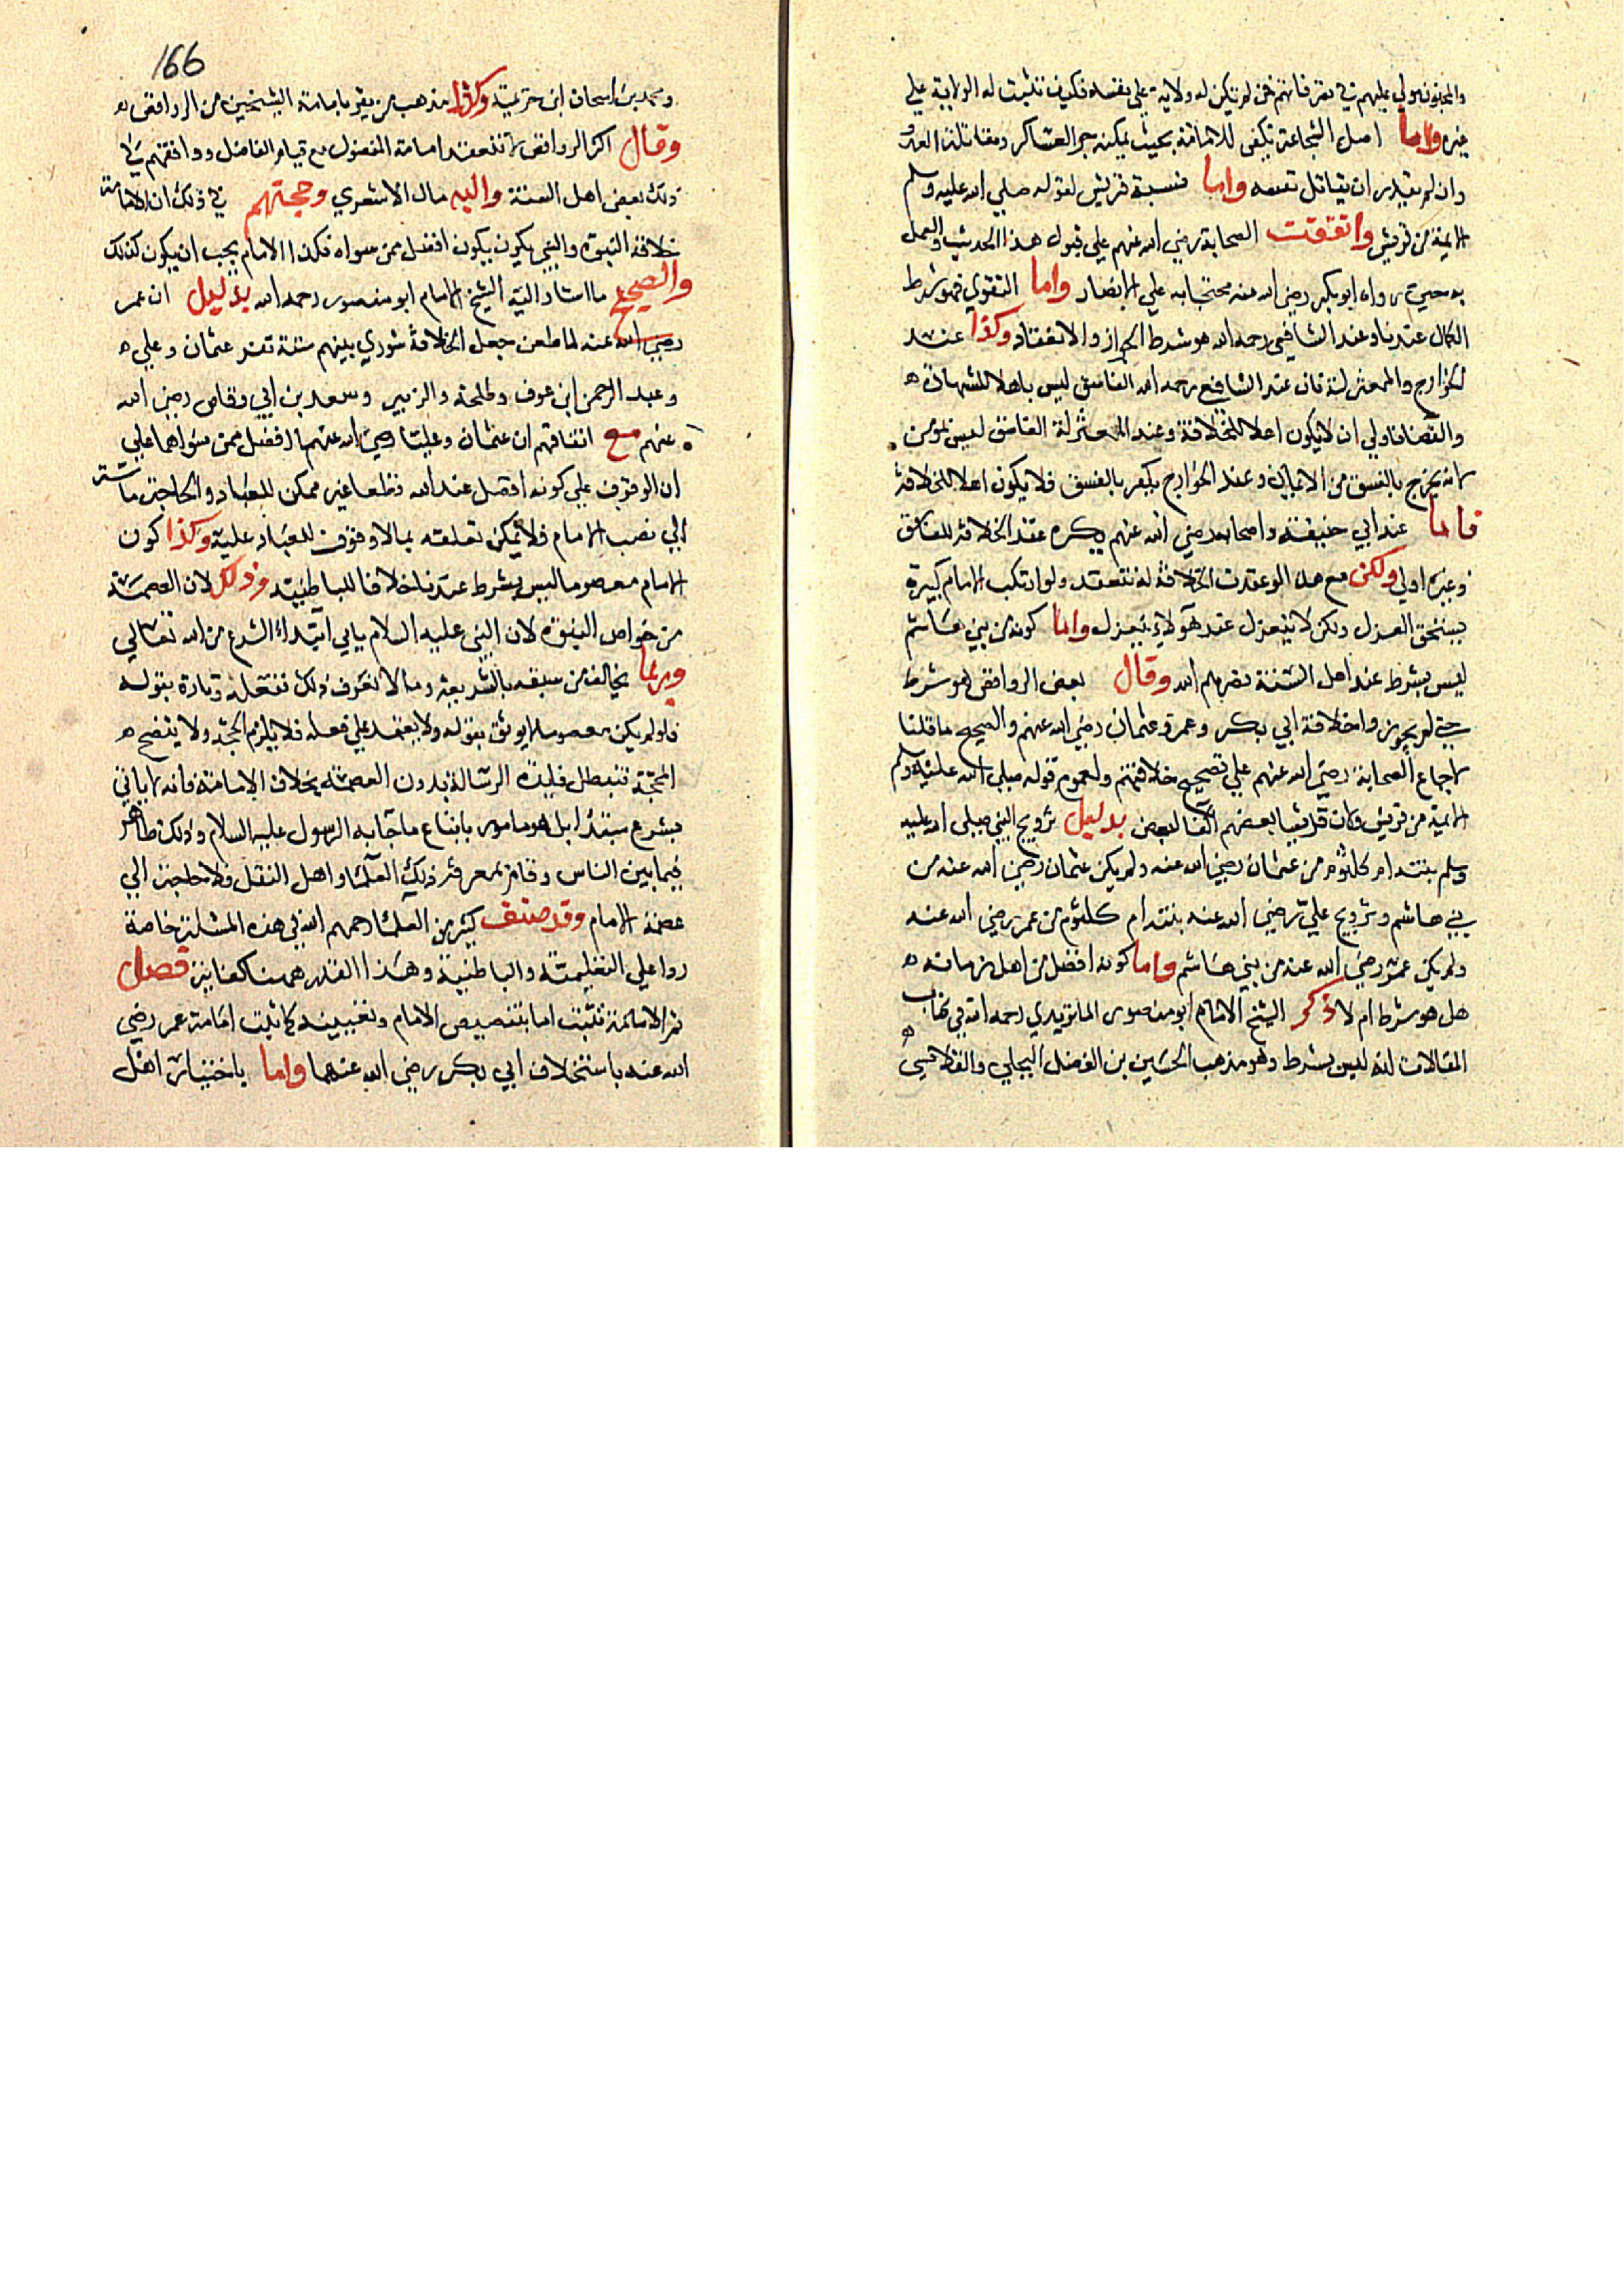 والمجنون مولي عليهم في تصرفاتهم فمن لم يكن له ولاية علي نفسه فكيف تثبت له الولاية علي
غيره واما اصل الشجاعة يكفى للامامة بحيث يمكنه جر العساكر ومقاتلة العدو
وان لم يقدر ان يقاتل بنفسه واما نسبة قريش لقوله صلي الله عليه وسلم
الايمة من قريش واتفقت الصحابة رضي الله عنهم علي قبول هذا الحديث والعمل
به حين رواه ابو بكر رضي الله عنه محتجا به علي الانصار واما التقوي فهو شرط
الكمال عندنا وعند الشافعي رحمه الله هو شرط الجواز والانعقاد وكذا عند
الخوارج والمعتزلة فان عند الشافعي رحمه الله الفاسق ليس باهلا للشهادة ه
والقضا فاولي ان لا يكون اهلا للخلافة وعند المعتزلة الفاسق ليس بمومن
لانه يخرج بالفسق من الايمان وعند الخوارج يكفر بالفسق فلا يكون اهلا للخلافة
فاما عند ابي حنيفة واصحابه رضي الله عنهم يكره عقد الخلافة للفاسق
وغيره اولي ولكن مع هذا لو عقدت الخلافة له تنعقد ولو ارتكب الامام كبيرة
يستحق العزل ولكن لا ينعزل عند هولاء ينعزل واما كونه من بني هاشم
ليس بشرط عند اهل السنة نصرهم الله وقال بعض الروافض هو شرط
حتي لم يجوزوا خلافة ابي بكر وعمر وعثمان رضي الله عنهم والصحيح ما قلنا
لاجماع الصحابة رضي الله عنهم علي تصحيح خلافتهم ولعموم قوله صلي الله عليه وسلم
الايمة من قريش وكان قريشيا بعضهم اكفا لبعض بدليل تزويج النبي صلي الله عليه
وسلم بنته ام كلثوم من عثمان رضي الله عنه ولم يكن عثمان رضي الله عنه من
بني هاشم وتزويج علي رضي الله عنه بنته ام كلثوم من عمر رضي الله عنه
ولم يكن عمر رضي الله عنه من بني هاشم واما كونه افضل من اهل زمانه ه
هل هو شرط ام لا ذكر الشيخ الامام ابو منصور الماتريدي رحمه الله في كتاب
المقالات انه ليس بشرط وهو مذهب الحسين بن الفضل البجلي والقلانسي
166
ومحمد بن اسحاق ابن خزيمة وكذا مذهب من يقر بامامة الشيخين من الروافض ه
وقال اكثر الروافض لا تنعقد امامة المفضول مع قيام الفاضل ووافقهم في
ذلك بعض اهل السنة واليه مال الاشعري وحجتهم في ذلك ان الامامة
خلافة النبوة والنبي يكون يكون افضل ممن سواه فكذا الامام يجب ان يكون كذلك
والصحيح ما اشار اليه الشيخ الامام ابو منصور رحمه الله بدليل ان عمر
رضي الله عنه لما طعن جعل الخلافة شوري بينهم ستة نفر عثمان وعلي ه
وعبد الرحمن ابن عوف وطلحة والزبير وسعد بن ابي وقاص رضي الله
عنهم مع اتفاقهم ان عثمان وعليا رضي الله عنهما افضل ممن سواهما علي
ان الوقوف علي كونه افضل عند الله قطعا غير ممكن للعباد والحاجة ماسة
الي نصب الامام فلا يمكن تعلقه بما لا وقوف للعباد عليه وكذا كون
الامام معصوما ليس بشرط عندنا خلافا للباطنية وذلك لان العصمة
من خواص النبوة لان النبي عليه السلام ياتي ابتداء الشرع من الله تعالي
وربما يخالف من سبقه بالشريعة وما لا نعرف ذلك بفعله وتارة بقوله
فلو لم يكن معصوما لا يوثق بقوله ولا يعتمد علي فعله فلا يلزم الحجة ولا يتضح ه
المحجة فتبطل فايدة الرسالة بدون العصمة بخلاف الامامة فانه لا ياتي
بشرع مبتدا بل هو مامور باتباع ما جا به الرسول عليه السلام وذلك ظاهر
فيما بين الناس وقام بمعرفة ذلك العلما واهل النقل فلا حاجة الي
عصمة الامام وقد صنف كثير من العلما رحمهم الله في هذه المسئلة خاصة
ردا علي التعليمية والباطنية وهذا القدر ههنا كفاية فصل
ثم الامامة تثبت اما بتنصيص الامام وتعيينه كما ثبت امامة عمر رضي
الله عنه باستخلاف ابي بكر رضي الله عنهما واما باختيار اهل